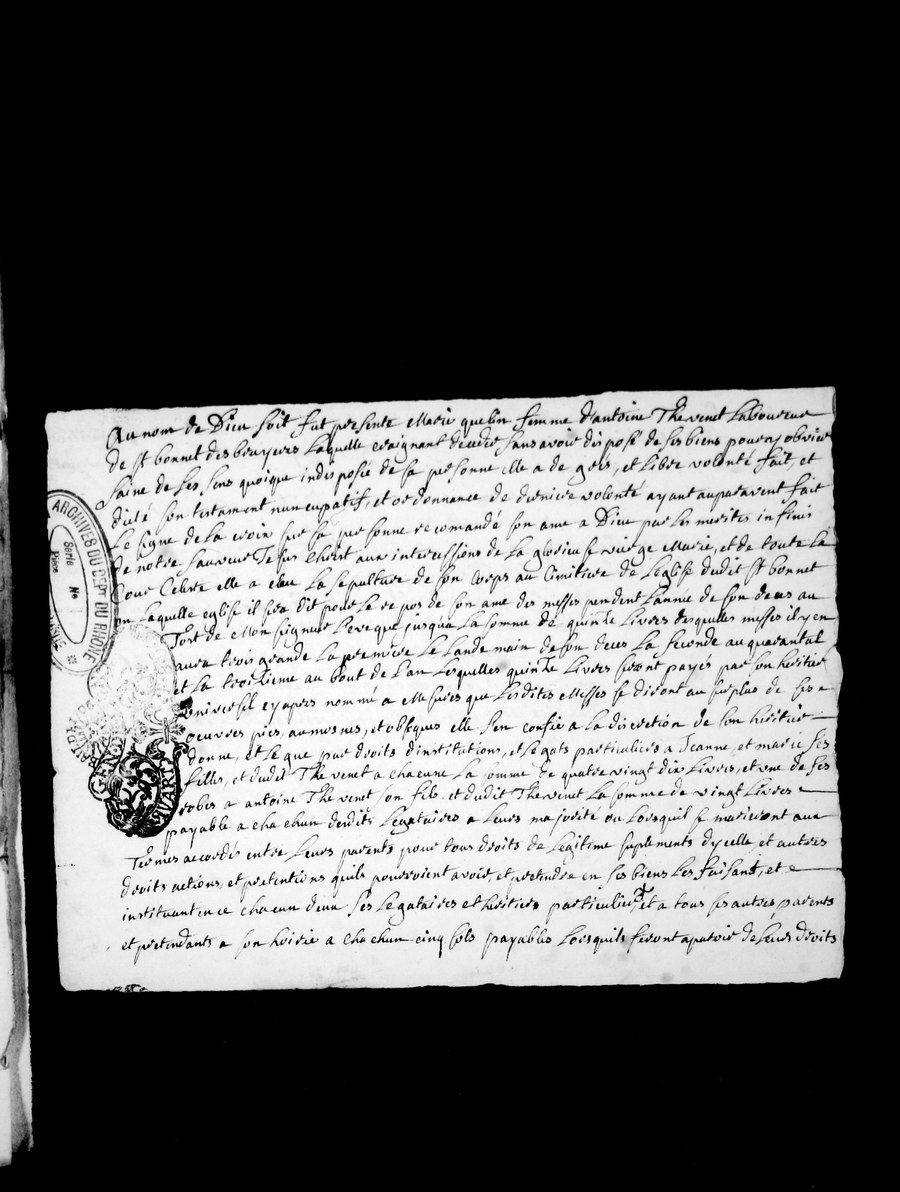 Au nom de Dieu soit fut presente Marie quelin femme d'antoine Thevenet Laboureur
de st bonnet des bruyeres Laquelle craignant deceder sans avoir disposé de ses biens pour y obvier
saine de ses sens quoique indisposée de sa personne elle a de gers, et Libre volonté fait, et
dicté son testament nuncupatif, et ordonnance de derniere volonté ayant auparavent fait
Le signe de La croix sur sa personne recomandé son ame a Dieu par les merites infinis
de notre sauveur Jesus christ aux intercessions de La glorieuse vierge Marie, et de toute La
Cour Celeste elle a eleu La sepulture de son corps au Cimitiere de Leglise dudit st bonnet
en Laquelle eglise il sera dit pour le repos de son ame des messes pendent Lannée de son deces au
Tort de Monseigneur Leveque jusqua La somme de quinze Livres desquelles messes il y en
aura trois grande La premiere Le Lande main de son deces La seconde au quarantal
et La troizieme au bout de Lan Lesquelles quinze Livres seront payés par son heritier
universel cy apres nommé a Mesures que Lesdites Messes se diront au surplus de ses
oeuvres pies, aumosnes, et obseques elle s'en confie a La discretion de son heritier
donne, et Legue par droits d'institutions, et Legats particuliers a Jeanne, et marie ses
filles, et dudit Thevenet a chacune La somme de quatre vingt dix Livres, et une de ses
robes a antoine Thevenet son fils et dudit Thevenet La somme de vingt Livres
payable a chachun desdits Legataires a Leurs majorité ou Lorsquil se mariront aux
Termes accordés entre Leurs parents pour tous droits de Legitime suplements dycelle et autres
droits actions, et pretentions quils pourroient avoir, et pretendre en ses biens Les faisant, et
instituant en ce chacun deux ses Legataires et heritiers particuliers et a tous ses autres parents
et pretendants a son hoirie a chachun cinq sols payables Lorsquils seront aparoir de Leurs droits
ARCHIVES DU DEPT DU RHONE
Serie
No
Pièce
GEN
QUART